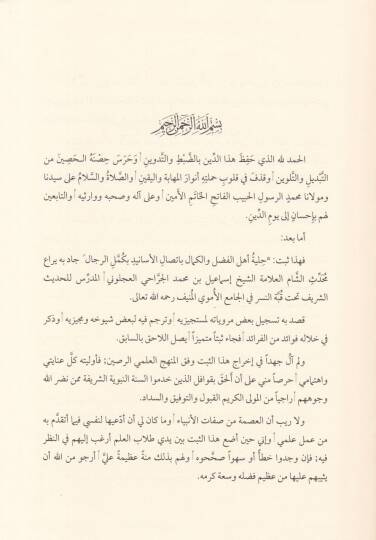 بسم الله الرحمن الرحيم
الحمد لله الذي حَفِظَ هذا الدِّين بالضَّبْطِ والتَّدوين، وَحَرَسَ حِصْنَهُ الحَصِينَ من
التَّبديلِ والتَّلوين، وقذفَ في قلوبِ حملتِهِ أنوارَ المهابة واليقين، والصَّلاةُ والسَّلامُ على سيدنا
ومولانا محمدٍ الرسولِ الحبيب الفاتحِ الخاتَمِ الأمين، وعلى آله وصحبه ووارثيه، والتابعين
لهم بإحسانٍ إلى يومِ الدِّين.
أما بعد:
فهذا ثبت: «حِليةُ أهل الفضل والكمال باتصالِ الأسانيدِ بكُمَّلِ الرجال، جاد به يراع
مُحَدِّثِ الشَّام العلامة الشيخ إسماعيل بن محمد الجَرَّاحي العجلوني، المدرِّس للحديث
الشريف تحت قُبَّة النسر في الجامع الأُموي المُنيف رحمه الله تعالى.
قصد به تسجيل بعض مروياته لمستجيزيه، وترجم فيه لبعض شيوخه ومجيزيه، وذكر
في خلاله فوائد من الفرائد، فجاء ثبتاً متميزاً، يصل اللاحق بالسابق.
ولم آلُ جهداً في إخراج هذا الثبت وفق المنهج العلمي الرصين؛ فأوليته كلَّ عنايتي
واهتمامي، حرصا مني على أن أَلْحَقَ بقوافل الذين خدموا السنة النبوية الشريفة ممن نضر الله
وجوههم، راجياً من المولى الكريم القبول والتوفيق والسداد.
ولا ريب أن العصمة من صفات الأنبياء، وما كان لي أن أدّعيها لنفسي فيما أتقدَّم به
من عمل علمي، وإني حين أضع هذا الثبت بين يدي طلاب العلم أرغب إليهم في النظر
فيه؛ فإن وجدوا خطأً أو سهواً صحَّحوه، ولهم بذلك منةٌ عظيمةٌ عليَّ، أرجو من الله أن
يثيبهم عليها من عظيم فضله وسعة كرمه.